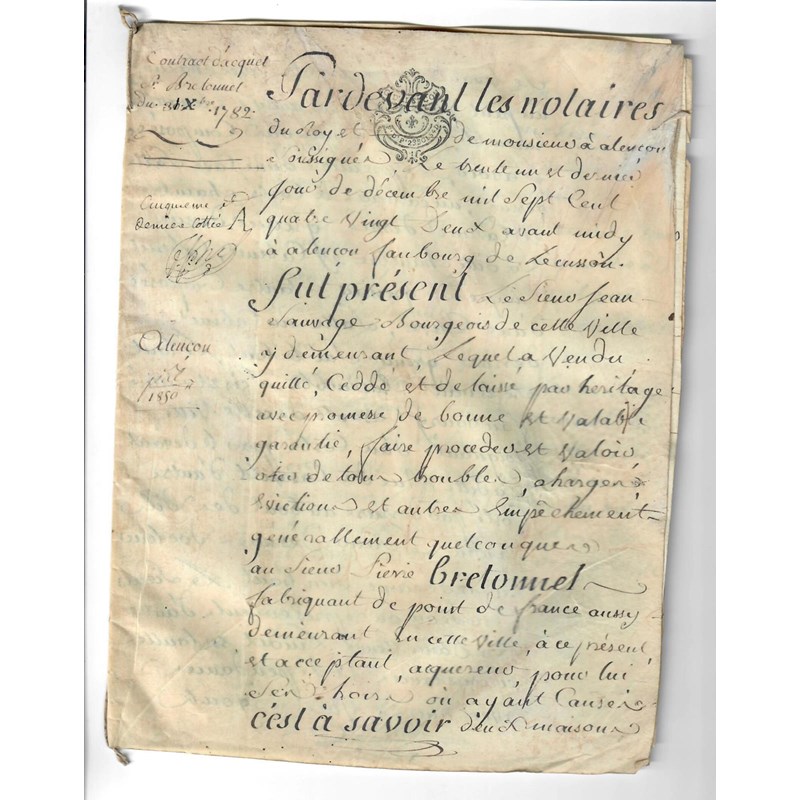 Contract d'acquet
Sr. Bretonnet
Du 1782.
Cinquieme et
derniere cottée A
Alençon
1850
Pardevant les notaires
du Roy et de monsieur à alençon
soussignés Le trente un et dernier
jour de décembre mil Sept Cent
quatre Vingt Deux avant midy
à alençon faubourg de Lecusson.
Fut présent Le Sieur Jean
Sauvage Bourgeois de cette Ville
y demeurant Lequel a Vendu
quitté, Ceddé et delaissé par heritage
avec promesse de bonne et Valable
garantie, faire proceder et Valoir
oter de tous troubles, charges
Evictions et autres Empêchements
generallement quelconques
au Sieur Pierre Bretonnet
fabriquant de point de france aussy
demeurant en cette Ville, à ce présent
et acceptant, acquereur pour lui
Ses hoirs ou ayant Causes
c'est à savoir deux maisons